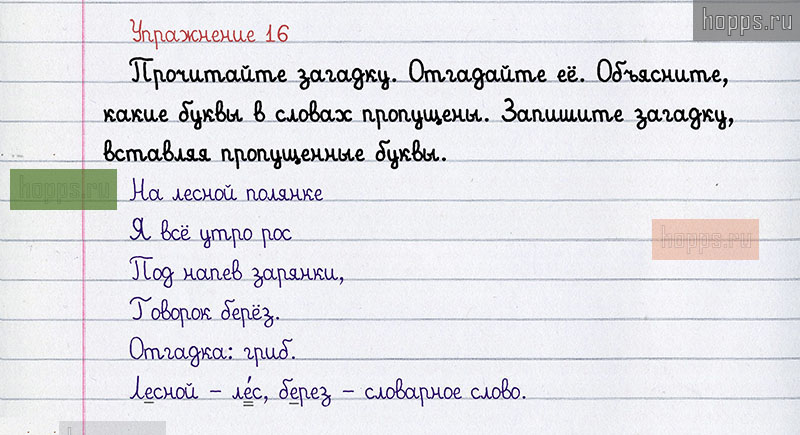 hopps.ru
Упражнение 16
Прочитайте загадку. Отгадайте её. Объясните,
какие буквы в словах пропущены. Запишите загадку,
вставляя пропущенные буквы.
hopps.ru
На лесной полянке
Я всё утро рос
hopps.ru
Под напев зарянки,
Говорок берёз.
Отгадка: гриб.
Лесной – ле́с, берез – словарное слово.